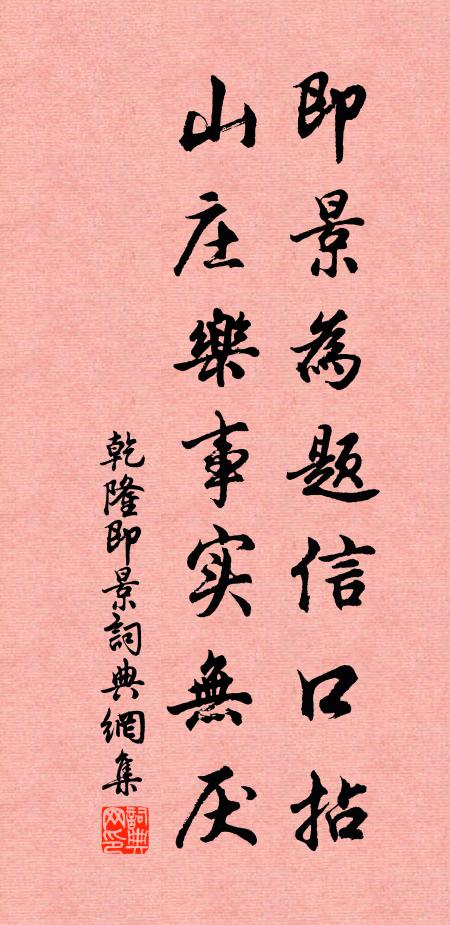 即景為题信口拈
山庄樂事实無厌
乾隆即景詞典網集
詞典网印